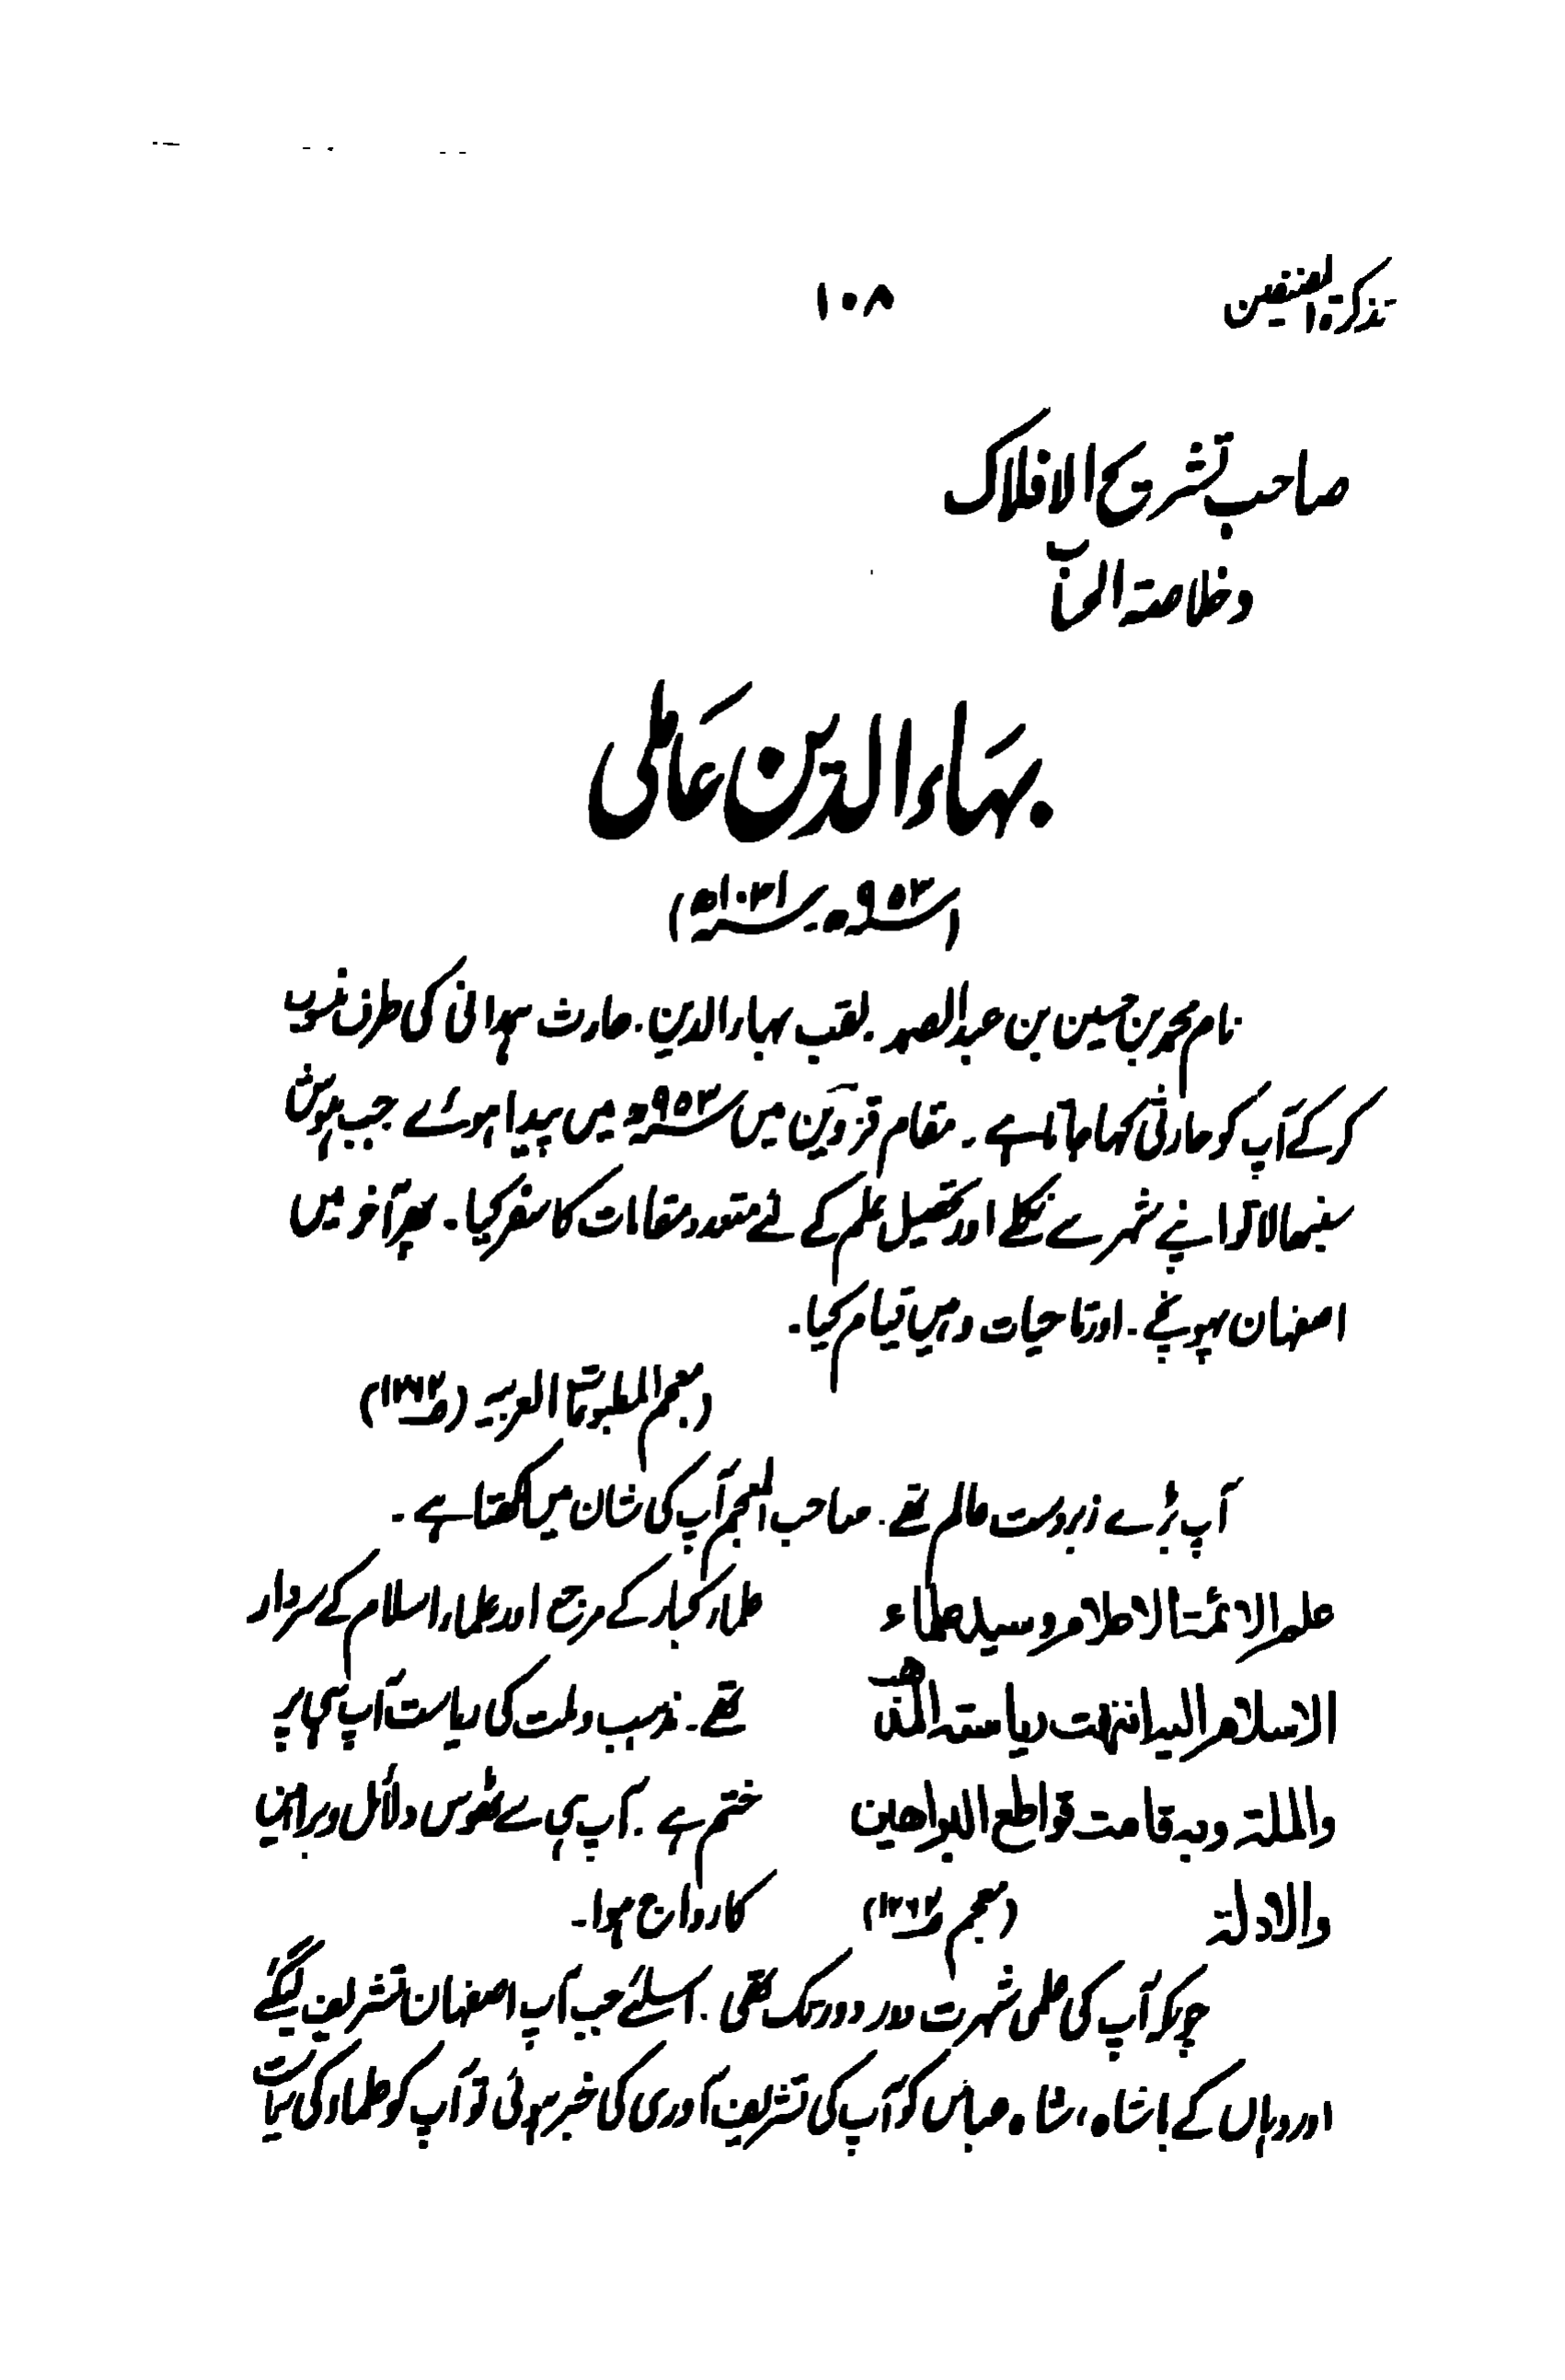 تذکرۃ المصنفین
۱۰۸
صاحب تشریح الافلاک
وخلاصۃ الحساب
بہاء الدین عاملی
(۹۵۳ھ ۔ ۱۰۳۱ھ)
نام محمد بن حسین بن عبدالصمد۔ لقب بہاء الدین۔ حارث ہمدانی کی طرف منسوب
کر کے آپ کو حارثی کہا جاتا ہے۔ مقام قزوین میں ۹۵۳ھ میں پیدا ہوئے جب ہوش
سنبھالا تو اپنے شہر سے نکلے اور تحصیل علم کے لئے متعدد مقامات کا سفر کیا۔ پھر آخر میں
اصفہان پہونچے۔ اور تا حیات وہیں قیام کیا۔
(معجم المطبوعات العربیہ (ص۱۲۶۲)
آپ بڑے زبردست عالم تھے۔ صاحب المعجم آپ کی شان میں لکھتا ہے۔
علم الائمۃ الاعلام وسید علماء
الاسلام الیہ انتہت ریاستہ المذہب
والملۃ وبہ قامت قواطع البراھین
والادلۃ (معجم ص۱۲۶۲)
علماء کبار کے مرجع اور علماء اسلام کے سردار
تھے۔ مذہب و ملت کی ریاست آپ ہی پر
ختم ہے۔ آپ ہی سے ٹھوس دلائل و براہین
کا رواج ہوا۔
چونکہ آپ کی علمی شہرت دور دور تک تھی۔ اسلئے جب آپ اصفہان تشریف لیگئے
اور وہاں کے بادشاہ، شاہ عباس کو آپ کی تشریف آوری کی خبر ہوئی تو آپ کو علماء کی ریاست